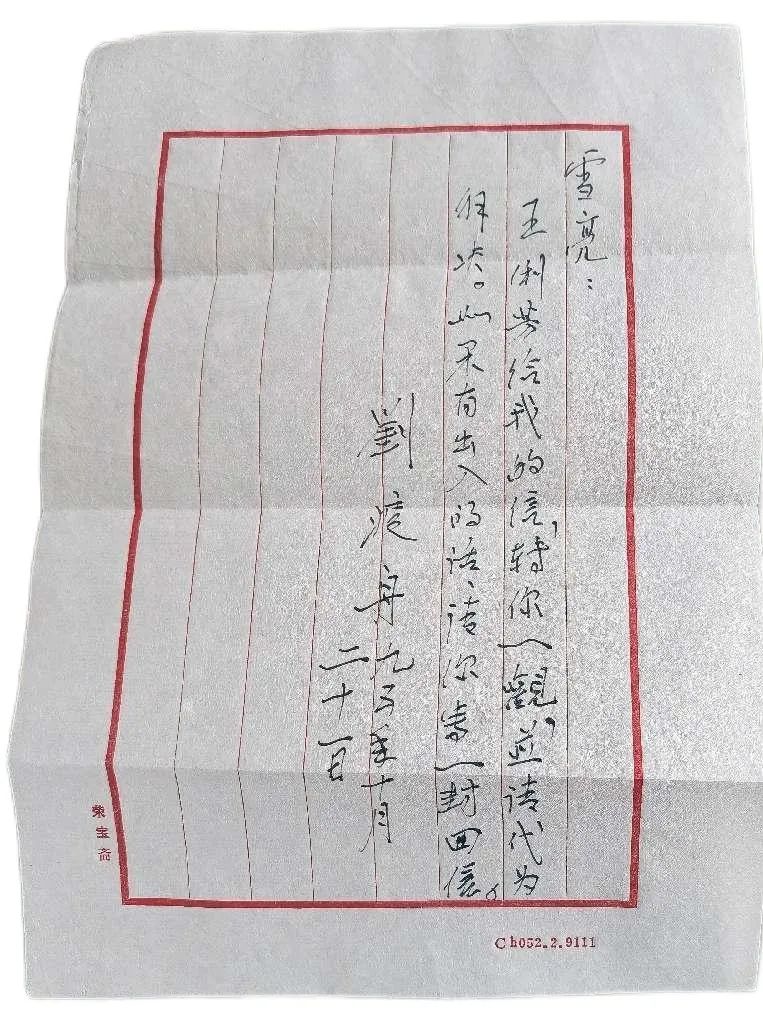 雪亮：
王利共给我的信，转你一觀，並请代为
解决。如果有出入的话，请你写一封回信。
劉渡舟九五年十月
二十一日
荣宝斋
Ch052.2.9111